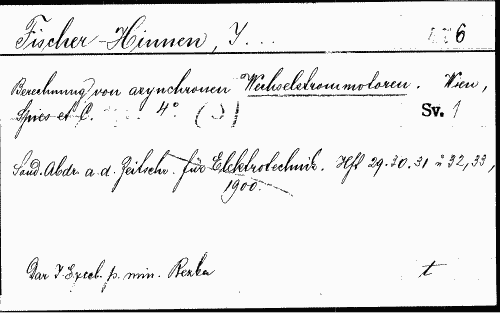 Fischer-Hinnen, J...
6
Berechnung von asynchronen Wechselstrommotoren. Wien,
Spies et C. 4° Sv. 1
Sond. Abdr. a. d. Zeitschr. für Elektrotechnik. Hft 29. 30. 31 u 32, 33,
1900.
Dar J. Excel. p. min. Rezka
t